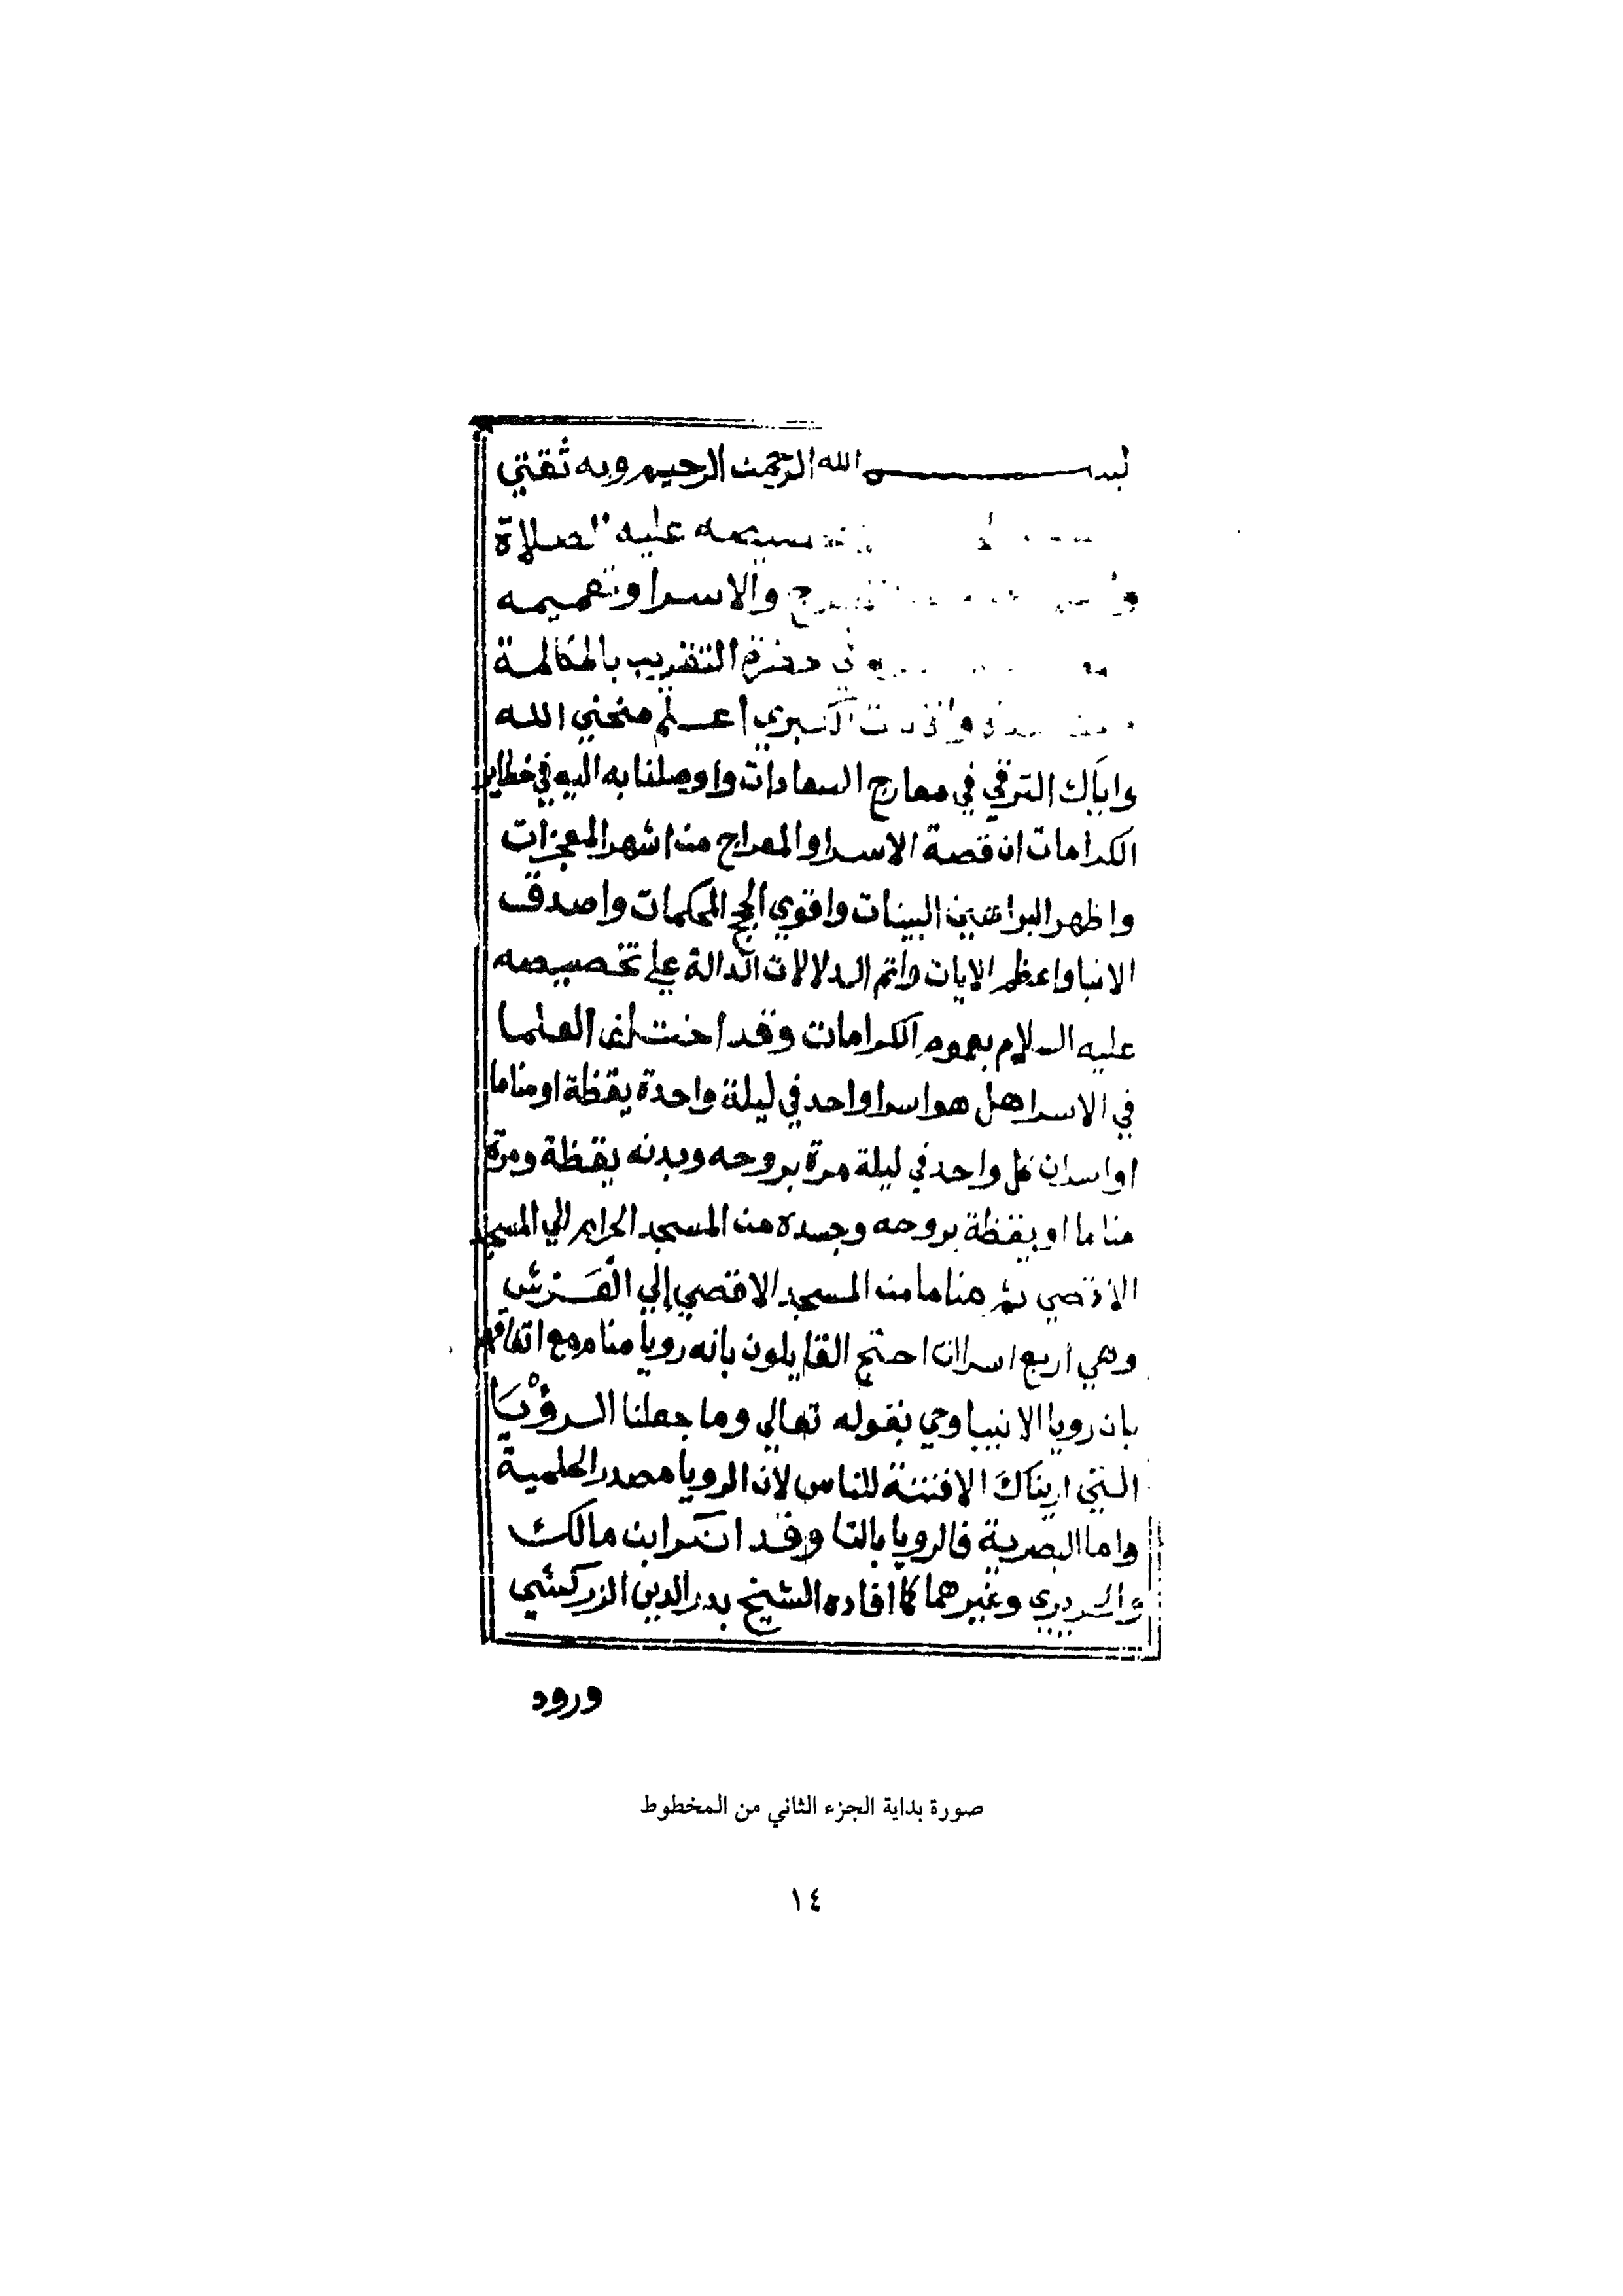 بسم الله الرحمن الرحيم وبه ثقتي
عليه الصلاة
والاسرا وتعميمه
في حضرة التقريب بالمكالمة
الكبري اعلم منحني الله
واياك الترقي في معارج السعادات واوصلنا به اليه في خطاير
الكرامات ان قصة الاسرا والمعراج من اشهر المعجزات
واظهر البراهين البينات واقوي الحجج المحكمات واصدق
الانبا واعظم الايات واتم الدلالات الدالة علي تخصيصه
عليه السلام بعموم الكرامات وقد اختلف العلما
في الاسرا هل هو اسرا واحد في ليلة واحدة يقظة او مناما
او اسران كل واحد في ليلة مرة بروحه وبدنه يقظة ومرة
مناما او يقظة بروحه وجسده من المسجد الحرام الي المسجد
الاقصي ثم مناما من المسجد الاقصي إلي العرش
وهي اربع اسراات احتج القايلون بانه رويا منام مع اتفاقهم
بان رويا الانبيا وحي بقوله تعالي وما جعلنا الرؤْيَا
التي اريناك الا فتنة للناس لان الرويا مصدر الحلمية
واما البصرية فالرويا بالتا وقد انكر ابن مالك
والحريري وغيرهما كما افاده الشيخ بدر الدين الزركشي
ورود
صورة بداية الجزء الثاني من المخطوط
١٤